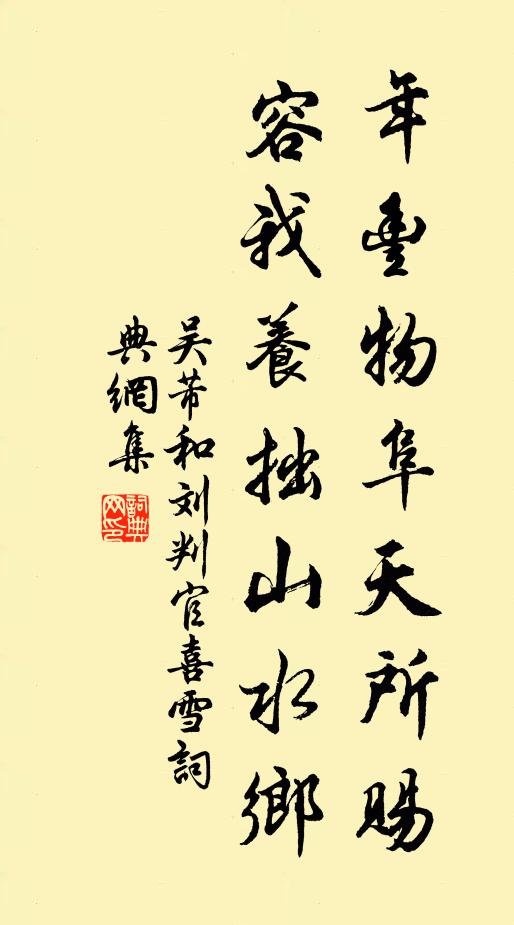 年豐物阜天所賜
容我養拙山水鄉
吴芾和刘判官喜雪詞
典網集
詞典網印